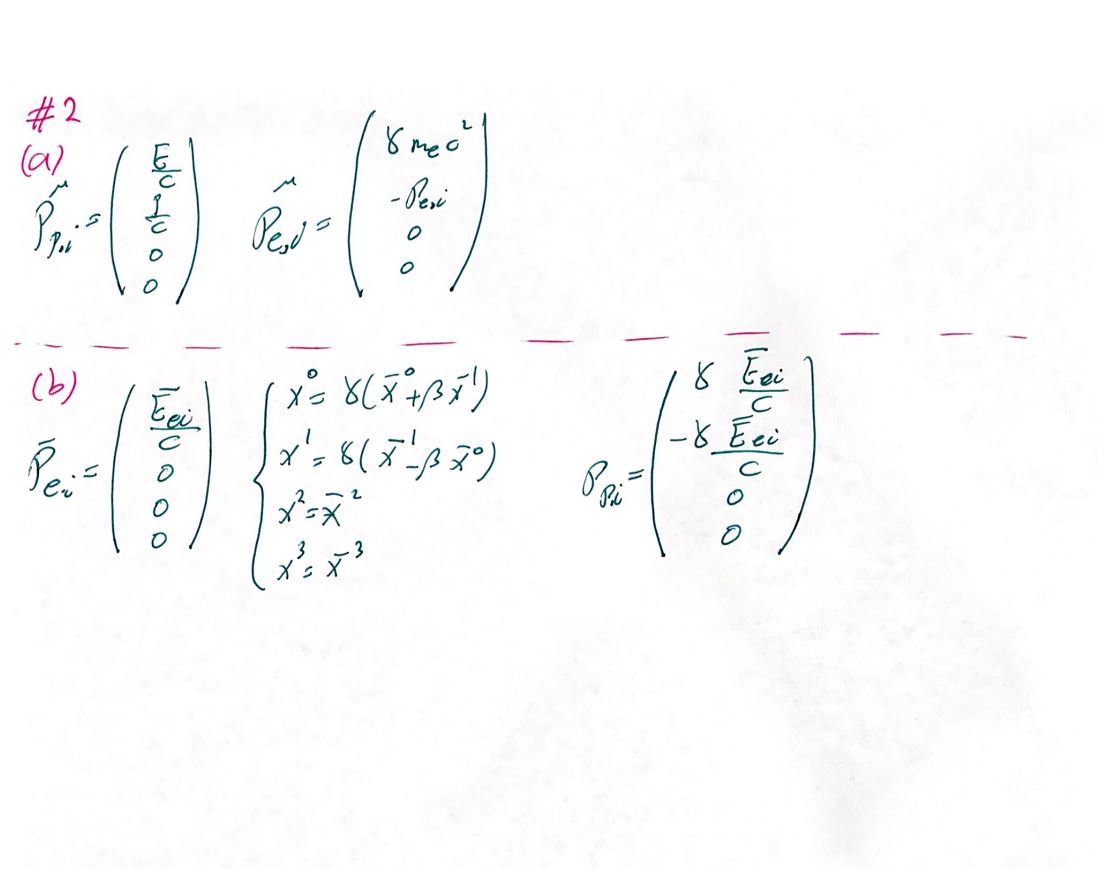 #2
(a)
P^μ_{p,i} = ( E/c, 1/c, 0, 0 )
P^μ_{e,i} = ( γ m_e c², -P_{e,i}, 0, 0 )
(b)
P̄_{ei} = ( Ē_{ei}/c, 0, 0, 0 )
x⁰ = γ(x̄⁰ + βx̄¹)
x¹ = γ(x̄¹ - βx̄⁰)
x² = x̄²
x³ = x̄³
P_{Pi} = ( γ Ē_{ei}/c, -γ Ē_{ei}/c, 0, 0 )